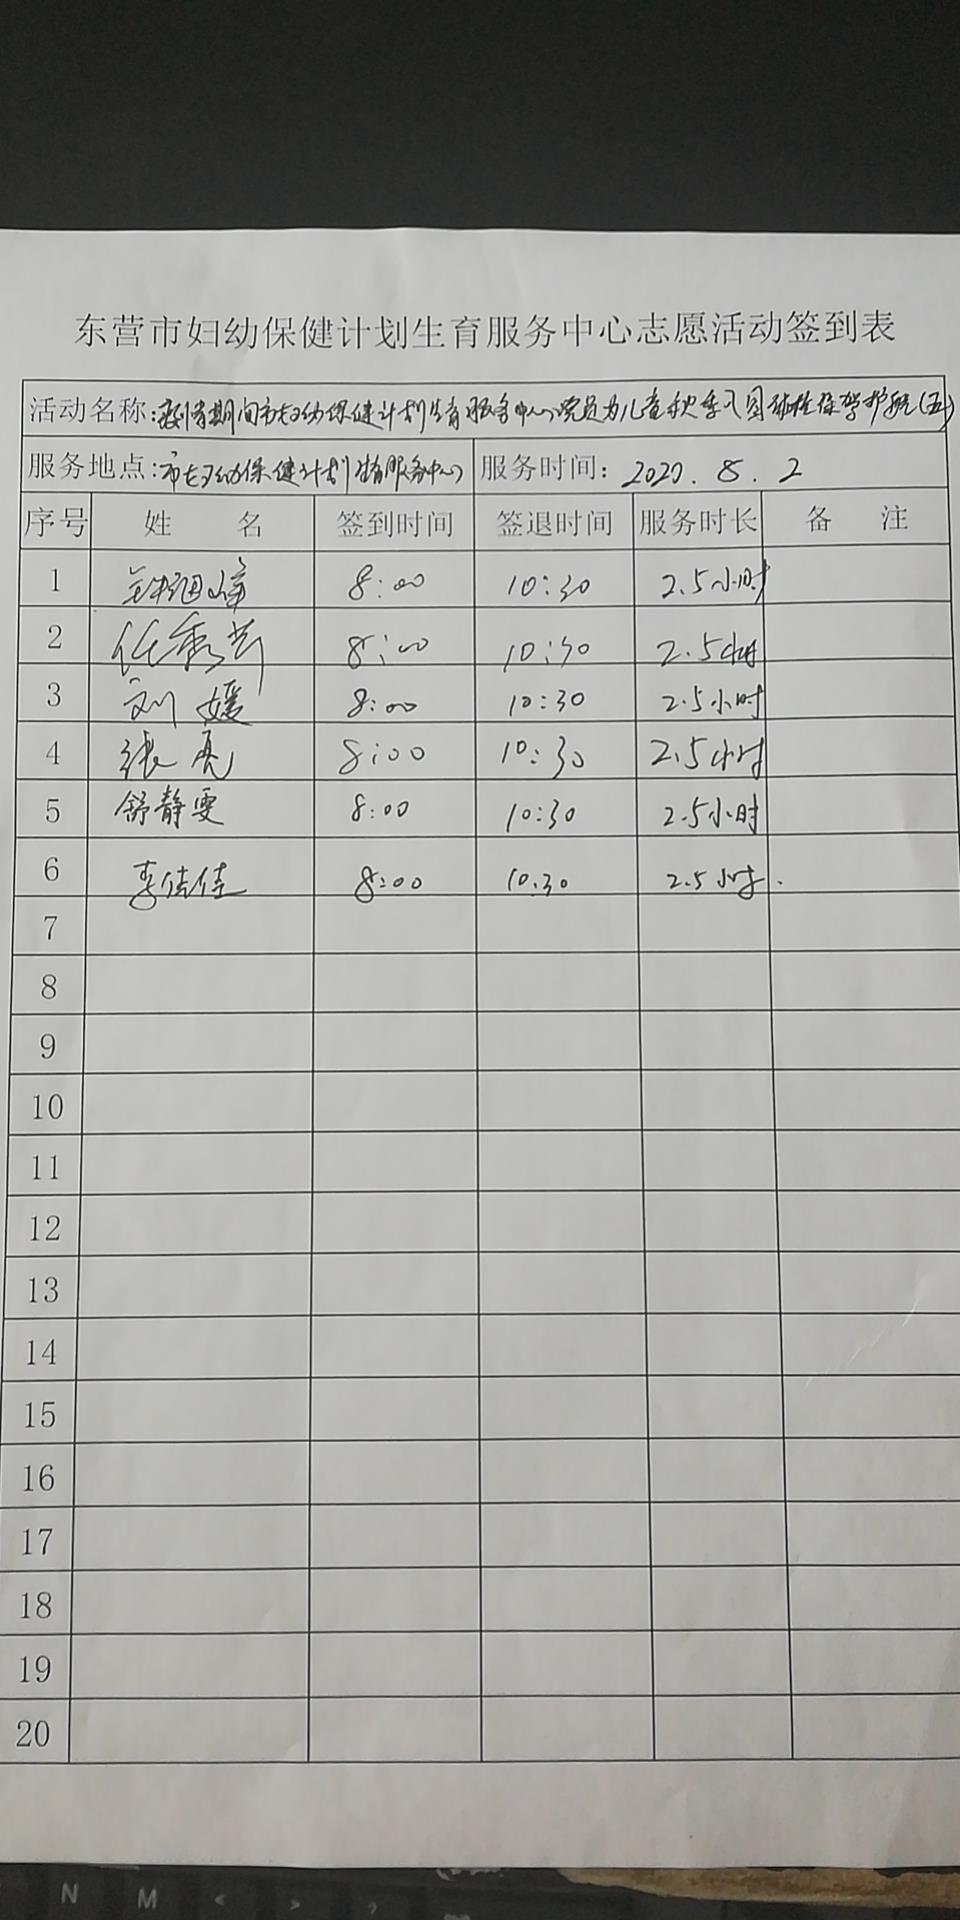 东营市妇幼保健计划生育服务中心志愿活动签到表
活动名称: 期间市妇幼保健计划生育服务中心党员为儿童秋季入园 保驾护航(五)
服务地点: 市妇幼保健计划生育服务中心 服务时间: 2020.8.2
序号 姓 名 签到时间 签退时间 服务时长 备 注
1 8:00 10:30 2.5小时
2 任秀兰 8:00 10:30 2.5小时
3 刘媛 8:00 10:30 2.5小时
4 张亮 8:00 10:30 2.5小时
5 舒静雯 8:00 10:30 2.5小时
6 李佳佳 8:00 10:30 2.5小时.
7
8
9
10
11
12
13
14
15
16
17
18
19
20
N M < > ?